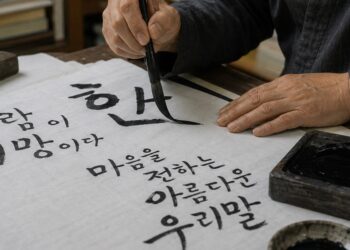 람이
망이다
한
마음을
전하는
아름다운
우리말